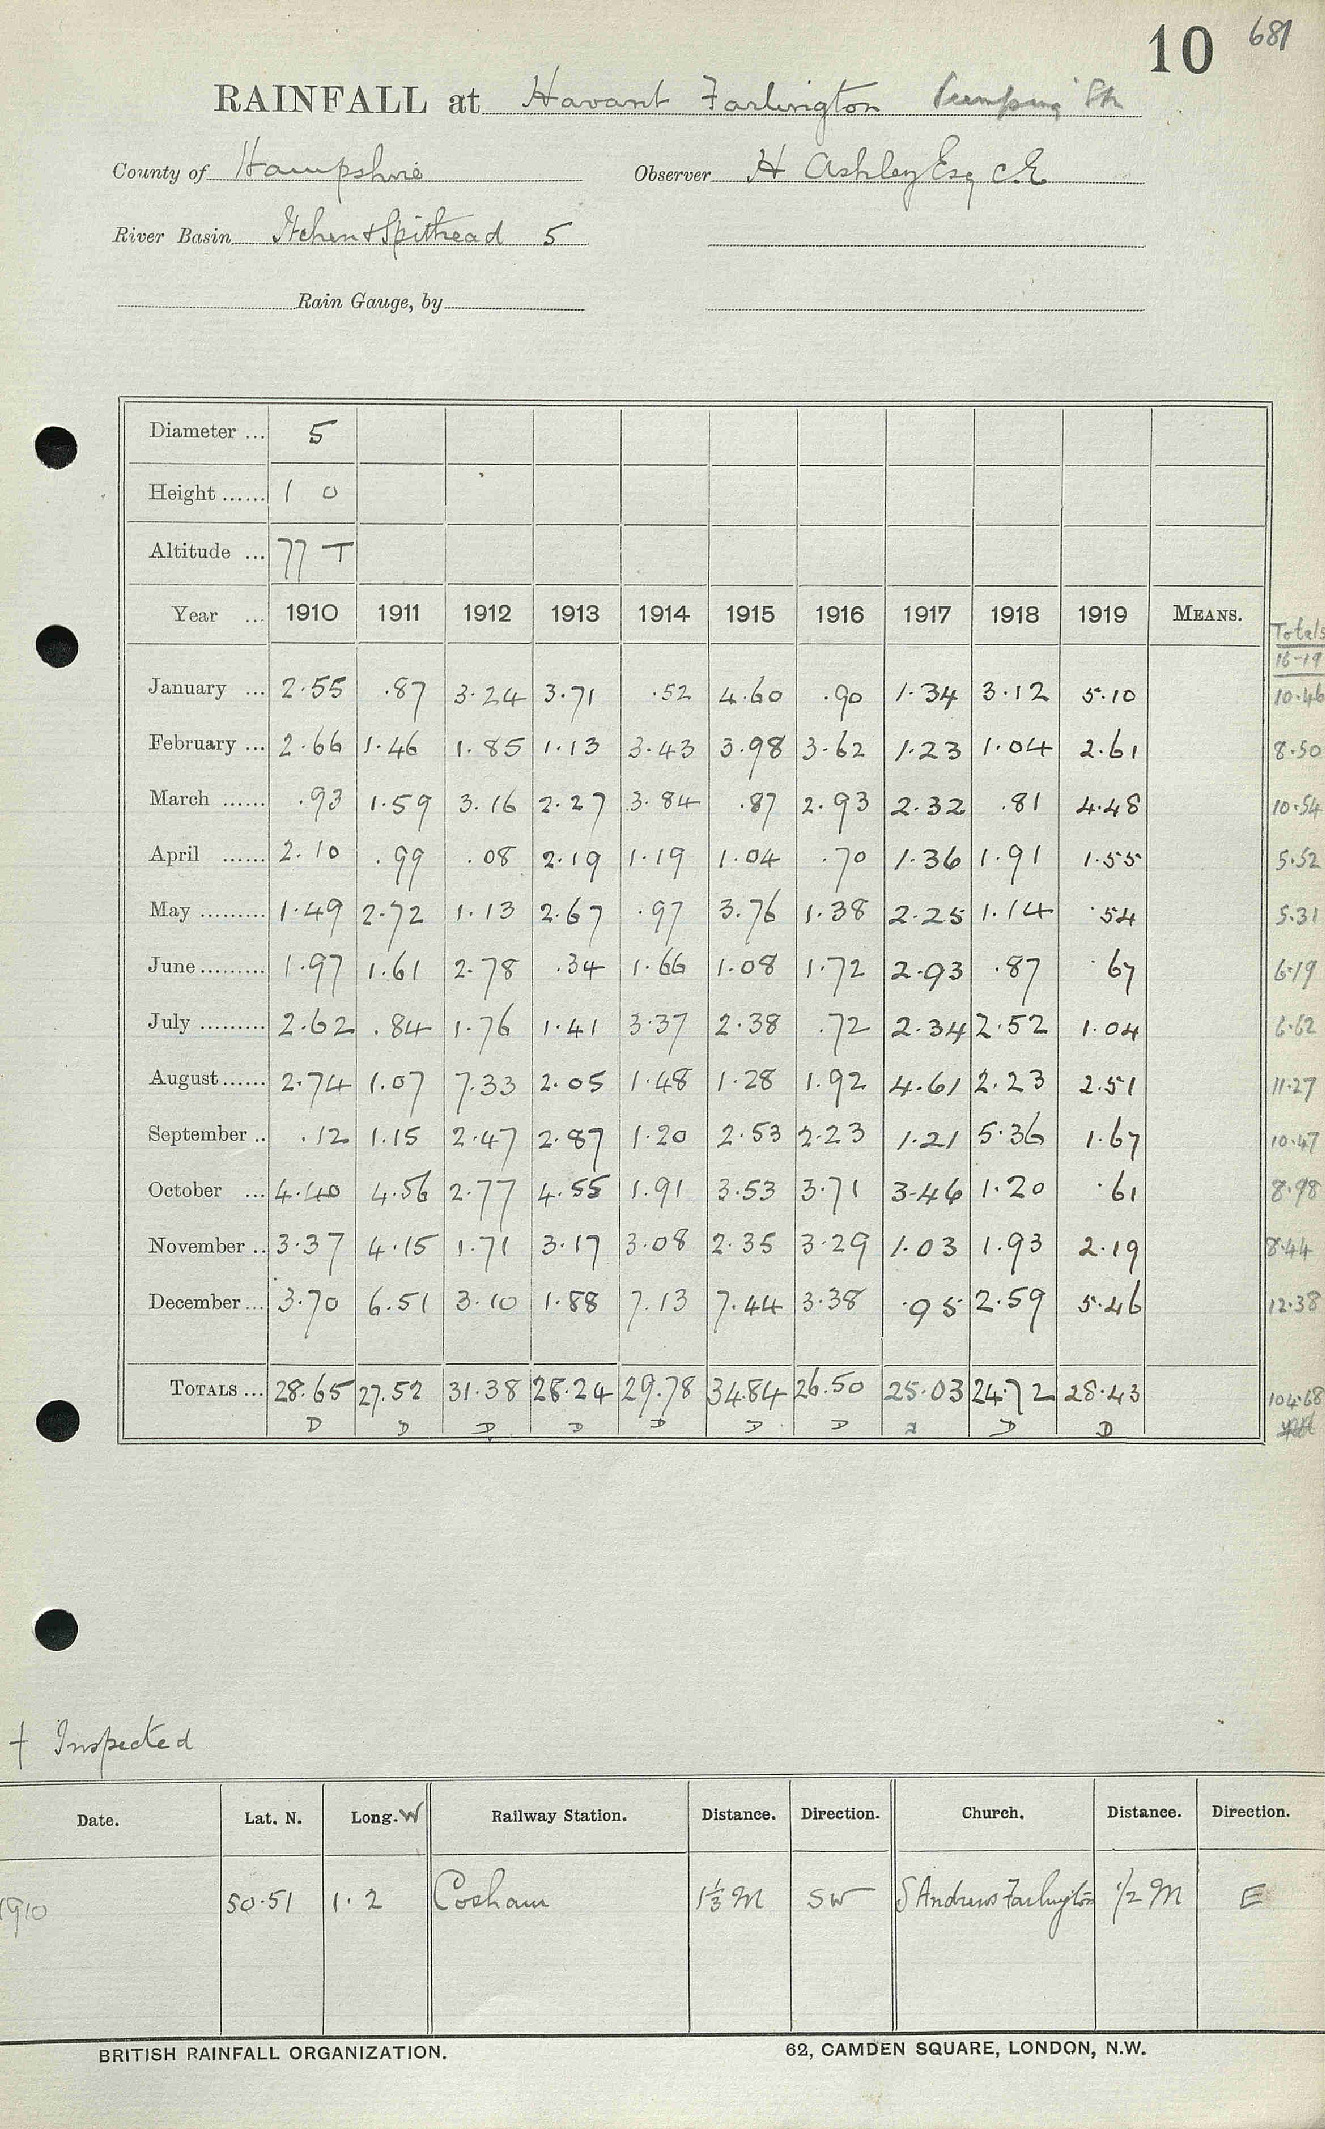 10 681
RAINFALL at Havant Farlington Pumping Stn
County of Hampshire Observer H Ashley Esq C.E
River Basin Itchen & Spithead 5
Rain Gauge, by
Diameter ... 5
Height ...... 1 0
Altitude ... 77 T
Year ... 1910 1911 1912 1913 1914 1915 1916 1917 1918 1919 MEANS. Totals
16-19
January ... 2.55 .87 3.24 3.71 .52 4.60 .90 1.34 3.12 5.10 10.46
February ... 2.66 1.46 1.85 1.13 3.43 3.98 3.62 1.23 1.04 2.61 8.50
March ...... .93 1.59 3.16 2.27 3.84 .87 2.93 2.32 .81 4.48 10.54
April ...... 2.10 .99 .08 2.19 1.19 1.04 .70 1.36 1.91 1.55 5.52
May ......... 1.49 2.72 1.13 2.67 .97 3.76 1.38 2.25 1.14 .54 5.31
June ......... 1.97 1.61 2.78 .34 1.66 1.08 1.72 2.93 .87 .67 6.19
July ......... 2.62 .84 1.76 1.41 3.37 2.38 .72 2.34 2.52 1.04 6.62
August ...... 2.74 1.07 7.33 2.05 1.48 1.28 1.92 4.61 2.23 2.51 11.27
September .. .12 1.15 2.47 2.87 1.20 2.53 2.23 1.21 5.36 1.67 10.47
October ... 4.40 4.56 2.77 4.55 1.91 3.53 3.71 3.46 1.20 .61 8.98
November .. 3.37 4.15 1.71 3.17 3.08 2.35 3.29 1.03 1.93 2.19 8.44
December ... 3.70 6.51 3.10 1.88 7.13 7.44 3.38 .95 2.59 5.46 12.38
TOTALS ... 28.65 27.52 31.38 28.24 29.78 34.84 26.50 25.03 24.72 28.43 104.68
D D D D D D D D D
† Inspected
Date. Lat. N. Long. W Railway Station. Distance. Direction. Church. Distance. Direction.
1910 50.51 1.2 Cosham 1⅓ M SW S Andrews Farlington 1/2 M E
BRITISH RAINFALL ORGANIZATION. 62, CAMDEN SQUARE, LONDON, N.W.